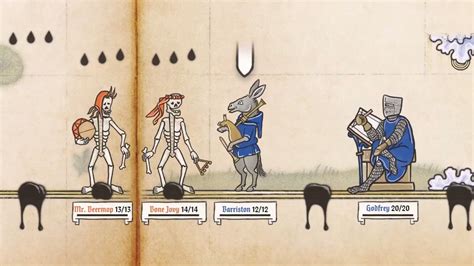 Mr. Beermop 13/13
Bone Jovy 14/14
Barriston 12/12
Godfrey 20/20